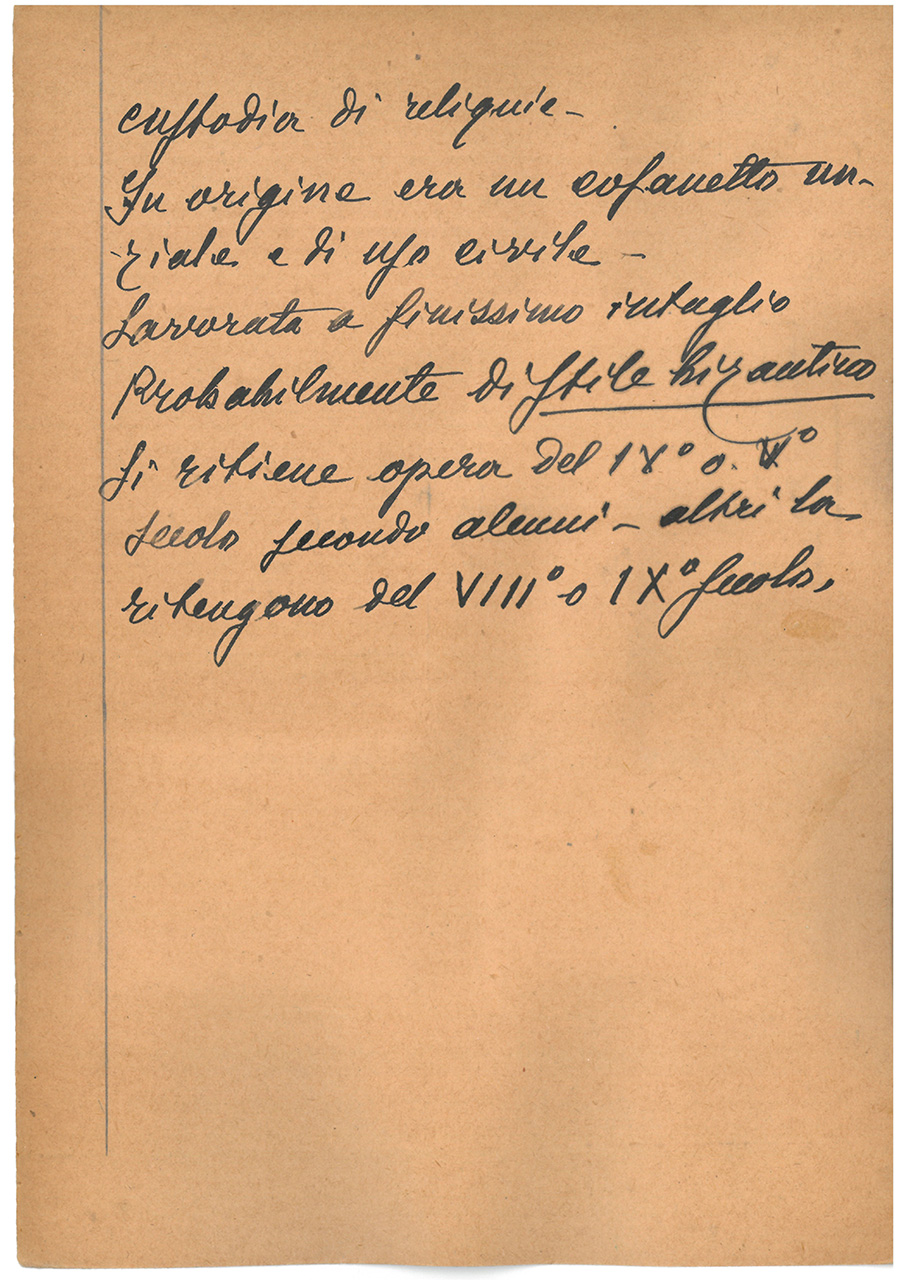 custodia di reliquie -
In origine era un cofanetto nu-
ziale e di uso civile -
Lavorata a finissimo intaglio
Probabilmente di stile bizantino
Si ritiene opera del IX° o. V°
secolo secondo alcuni - altri la
ritengono del VIII° o IX° secolo.